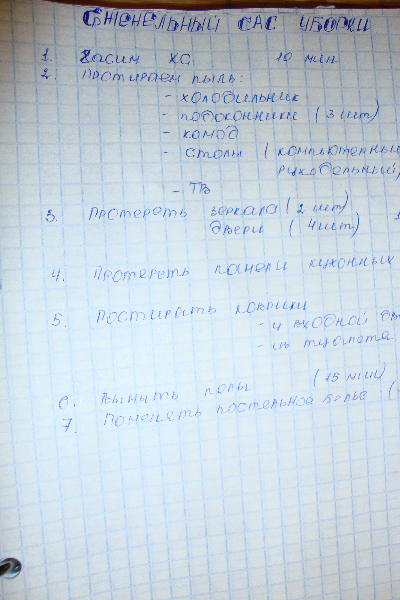 ЕЖЕНЕЛЬНЫЙ САС УБОРКИ
1. ХС 10 мин
2. Протираем пыль:
- холодильник
- подоконники (3 шт)
- комод
- столы (компьютерный
рукодельный)
- ТВ
3. Протереть зеркала (2 шт)
двери (4 шт)
4. Протереть панели кухонных
5. Постирать коврики
- у входной
- из туалета
6. Вымыть полы (15 мин)
7. Поменять постельное белье (